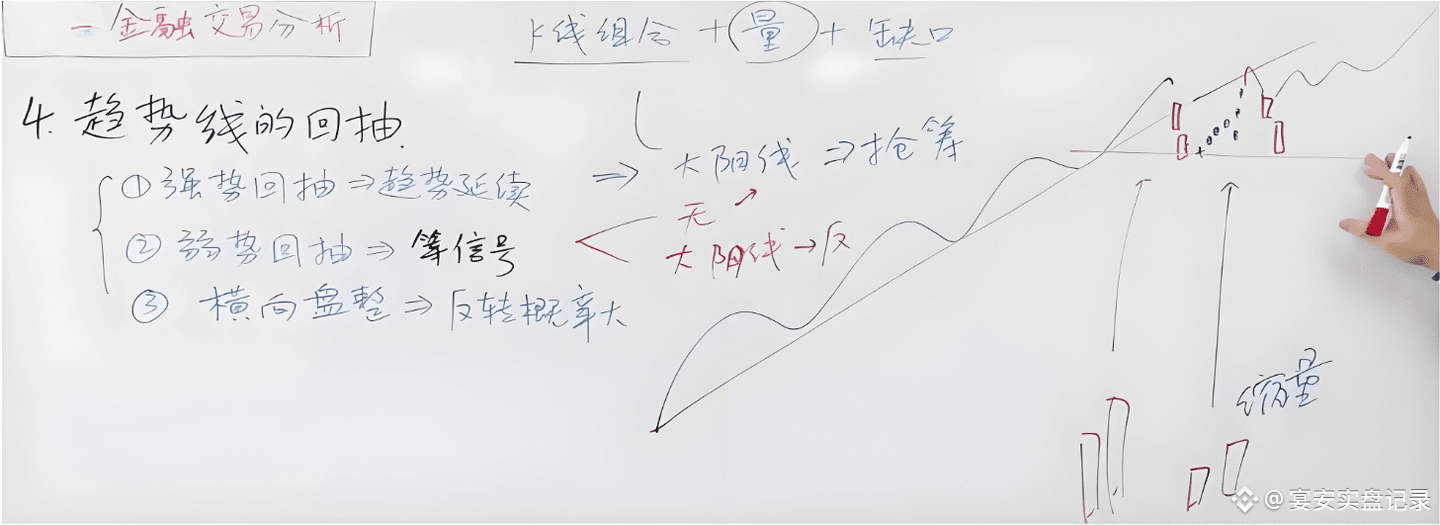 一金融交易分析
K线组合+量+缺口
4.趋势线的回抽
①强势回抽⇒趋势延续
⇒大阳线⇒抢筹
②弱势回抽⇒等信号
无↗
大阴线→反
③横向盘整⇒反转概率大
缩量
@宴安实盘记录